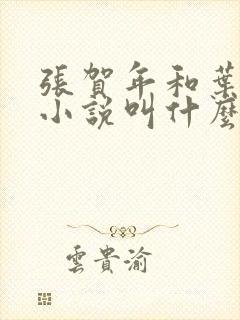 張賀年和葉
小說叫什麼
雲貴渝